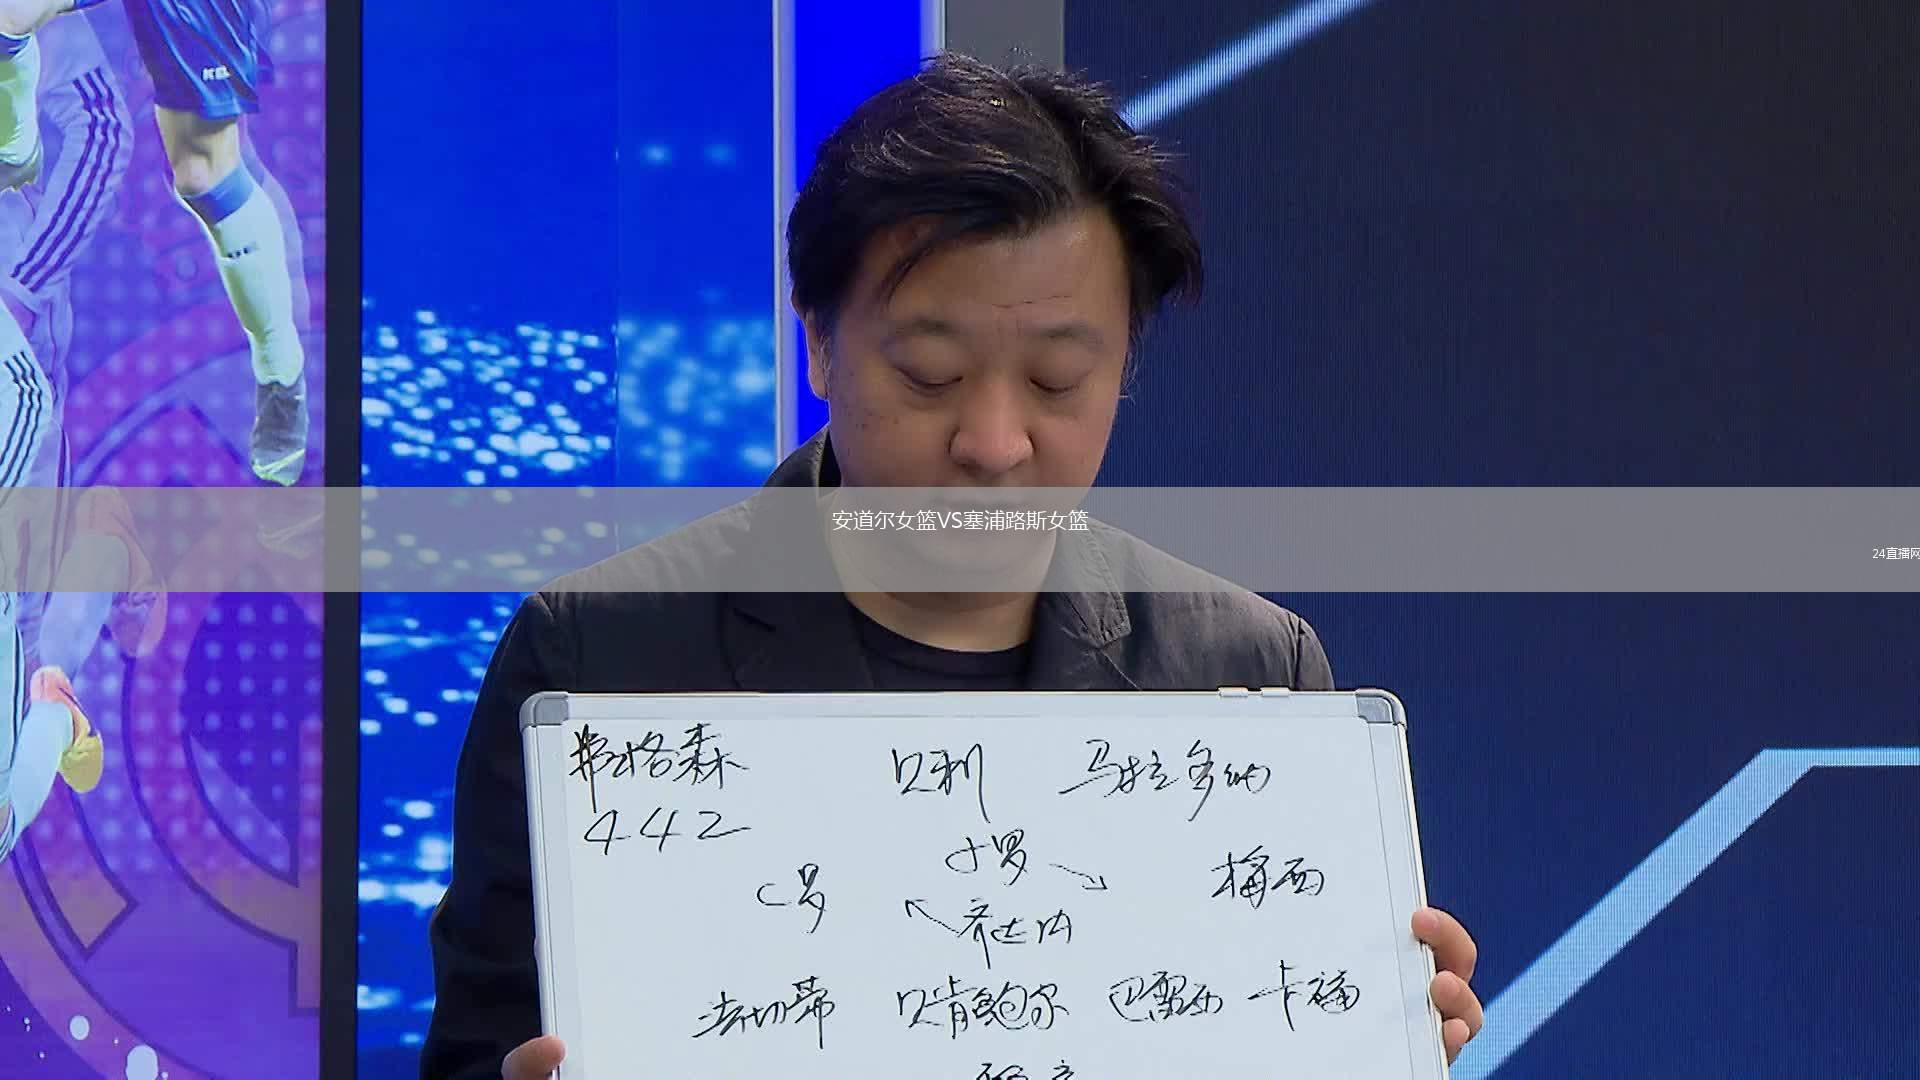 安道尔女篮VS塞浦路斯女篮
24直播网
弗格森 贝利 马拉多纳
442
小罗
C罗 梅西
齐达内
法切蒂 贝肯鲍尔 巴雷西 卡福